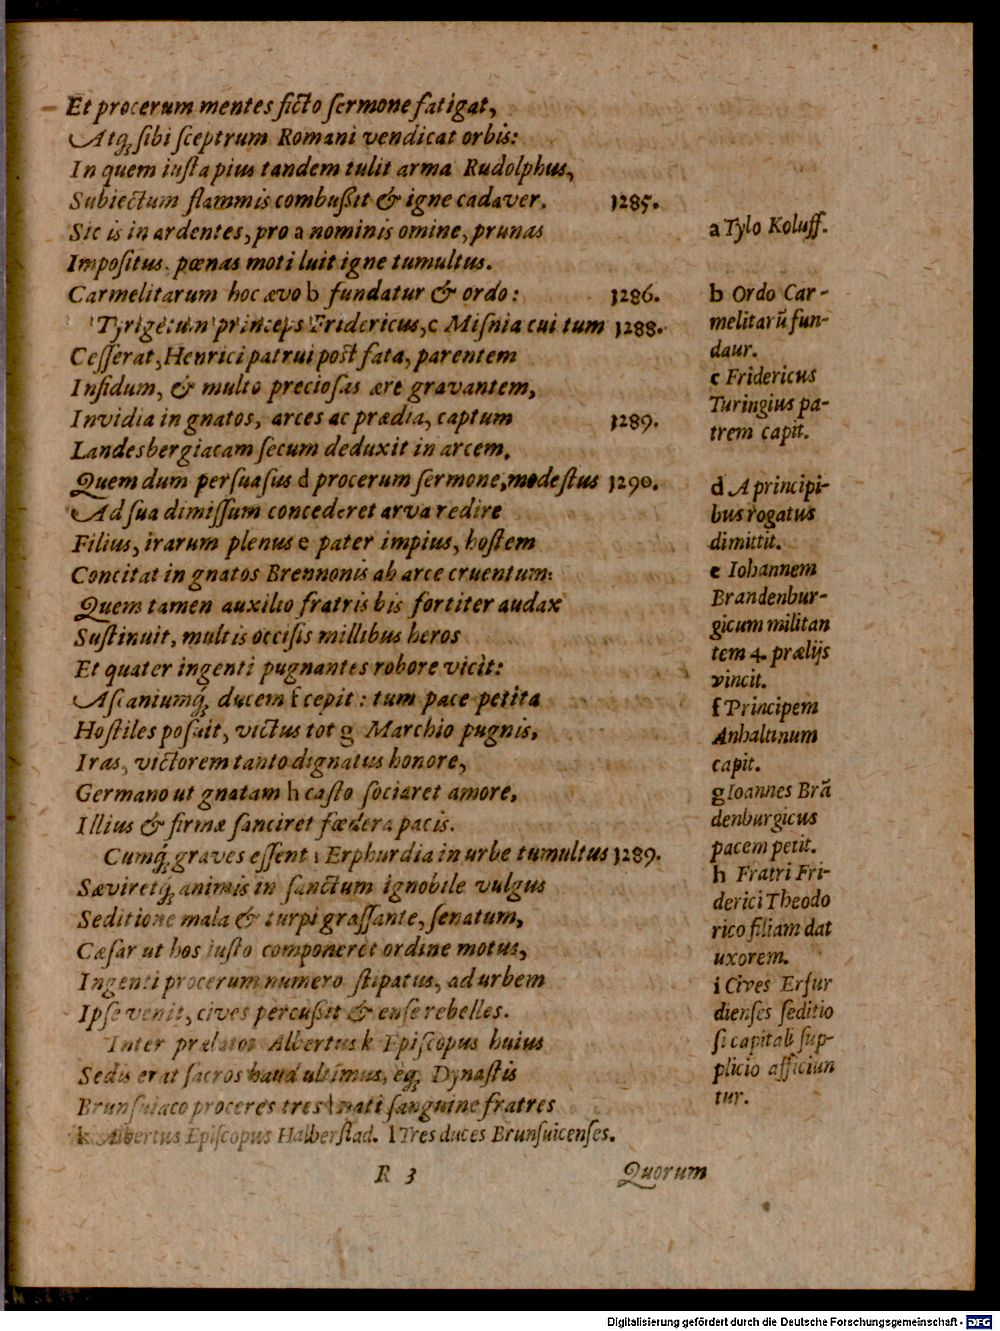 Et procerum mentes ficto ſermone fatigat,
Atq́; ſibi ſceptrum Romani vendicat orbis:
In quem iuſta pius tandem tulit arma Rudolphus,
Subiectum flammis combuſsit & igne cadaver. 1285.
Sic is in ardentes, pro a nominis omine, prunas
Impoſitus, pœnas moti luit igne tumultus.
Carmelitarum hoc ævo b fundatur & ordo: 1286.
Tyrigetum princeps Fridericus, c Miſnia cui tum 1288.
Ceſſerat, Henrici patrui poſt fata, parentem
Infidum, & multo precioſas ære gravantem,
Invidia in gnatos, arces ac prædia, captum 1289.
Landesbergiacam ſecum deduxit in arcem.
Quem dum perſuaſus d procerum ſermone, modeſtus 1290.
Ad ſua dimiſſum concederet arva redire
Filius, irarum plenus e pater impius, hoſtem
Concitat in gnatos Brennonis ab arce cruentum:
Quem tamen auxilio fratris bis fortiter audax
Suſtinuit, multis occiſis millibus heros
Et quater ingenti pugnantes robore vicit:
Aſcaniumq́; ducem f cepit: tum pace petita
Hoſtiles poſuit, victus tot g Marchio pugnis,
Iras, victorem tanto dignatus honore,
Germano ut gnatam h caſto ſociaret amore,
Illius & firmæ ſanciret fœdera pacis.
Cumq́; graves eſſent i Erphurdia in urbe tumultus 1289.
Sæviretq́; animis in ſanctum ignobile vulgus
Seditione mala & turpi graſſante, ſenatum,
Cæſar ut hos iuſto componeret ordine motus,
Ingenti procerum numero ſtipatus, ad urbem
Ipſe venit, cives percuſsit & enſe rebelles.
Inter prælatos Albertus k Epiſcopus huius
Sedis erat ſacros haud ultimus, eq́; Dynaſtis
Brunſuiaco proceres tres l nati ſanguine fratres
k Albertus Epiſcopus Halberſtad. l Tres duces Brunſuicenſes.
R 3 Quorum
a Tylo Koluff.
b Ordo Car-
melitarũ fun-
daur.
c Fridericus
Turingius pa-
trem capit.
d A principi-
bus rogatus
dimittit.
e Iohannem
Brandenbur-
gicum militan
tem 4. prælijs
vincit.
f Principem
Anhaltinum
capit.
g Ioannes Brã
denburgicus
pacem petit.
h Fratri Fri-
derici Theodo
rico filiam dat
uxorem.
i Cives Erfur
dienſes ſeditio
ſi capitali ſup-
plicio afficiun
tur.
Digitalisierung gefördert durch die Deutsche Forschungsgemeinschaft - DFG